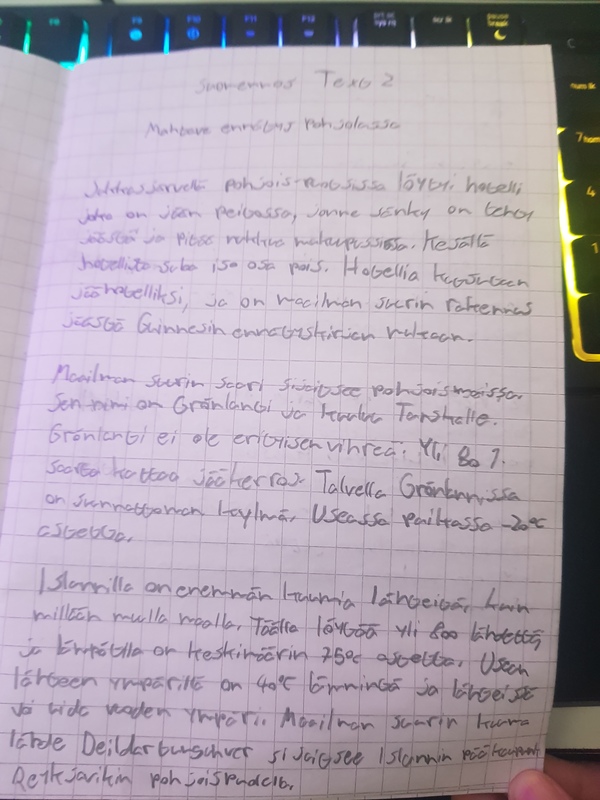 F9
F10
F11
F12
prt sc
sys rq
scr lk
pause
break
num lk
7 hom
4
1
C
Suomennos Text 2
Mahtava ennätys pohjolassa
Jukkasjärvellä pohjois-ruotsissa löytyy hotelli
joka on jään peitossa, jonne sänky on tehty
jäästä ja pitää nukkua makuupussissa. Kesällä
hotellista sulaa iso osa pois. Hotellia kutsutaan
jäähotelliksi, ja on maailman suurin rakennus
jäästä Guinnesin ennätyskirjan mukaan.
Maailman suurin saari sijaitsee pohjoismaissa.
Sen nimi on Grönlanti ja kuuluu Tanskalle.
Grönlanti ei ole erityisen vihreä. Yli 80 %
saarta kattaa jääkerros. Talvella Grönlannissa
on sunnattoman kylmä. Useassa paikassa -20°C
astetta.
Islannilla on enemmän kuumia lähteitä, kuin
millään muulla maalla. Täällä löytää yli 800 lähdettä,
ja lämpötila on keskimäärin 75°C astetta. Usean
lähteen ympärillä on 40°C lämmintä ja lähteistä
voi uida vuoden ympäri. Maailman suurin kuuma
lähde Deildartunguhver sijaitsee Islannin pääkaupunki
Reikjavikin pohjoispuolella.